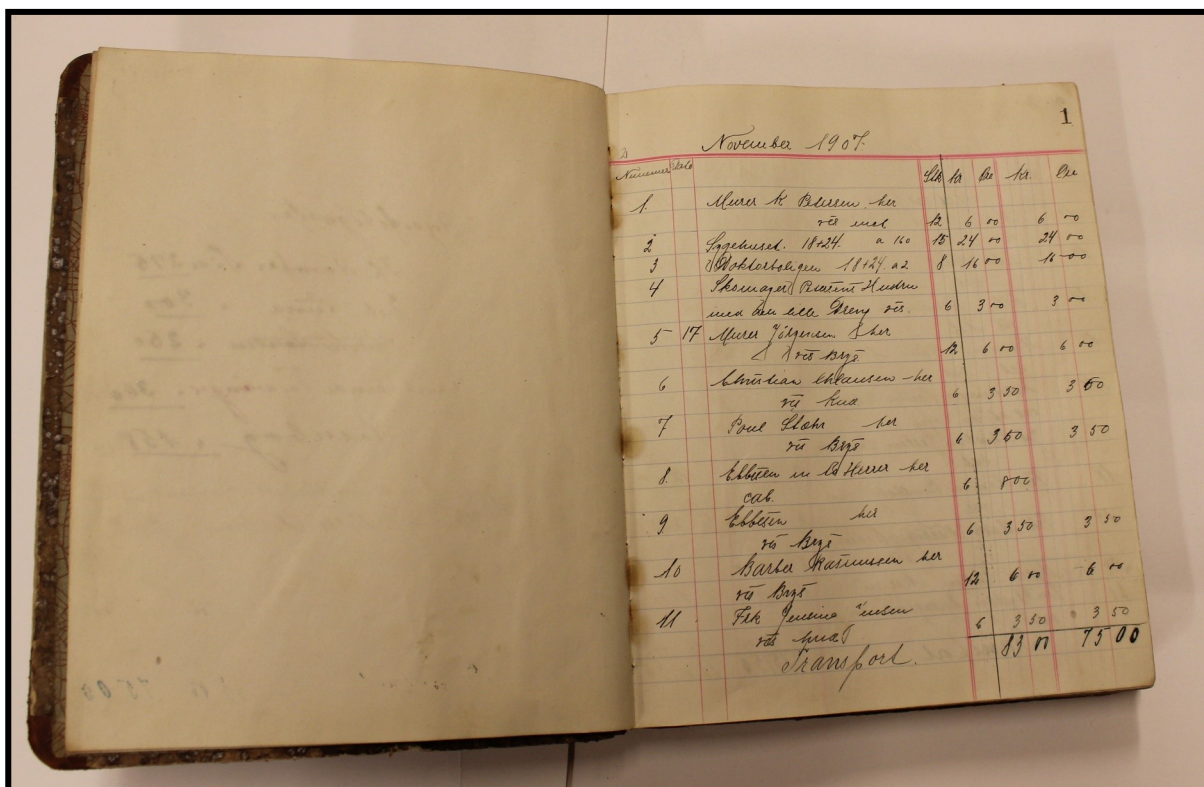 1
November 1907.
Nummer Dato Stk Kr Øre Kr. Øre
1. Murer K Petersen her
vis 12 6 00 6 00
2 Sygehuset. 18+24. a 160 15 24 00 24 00
3 Doktorboligen 18+24. a 2 8 16 00 16 00
4 Skomager
med den lille Dreng vis. 6 3 00 3 00
5 17 Murer Jörgensen her
vis Bryst 12 6 00 6 00
6 Christian Clausen her
vis Knæ 6 3 50 3 50
7 Poul Stæhr her
vis Bryst 6 3 50 3 50
8. Ebbesen Herrer her
cab. 6 8 00
9 Ebbesen her
vis Bryst 6 3 50 3 50
10 Barber Rasmussen her
vis Bryst 12 6 00 6 00
11 Frk Jensen 6 3 50 3 50
vis Knæ
Transport. 83 00 75 00